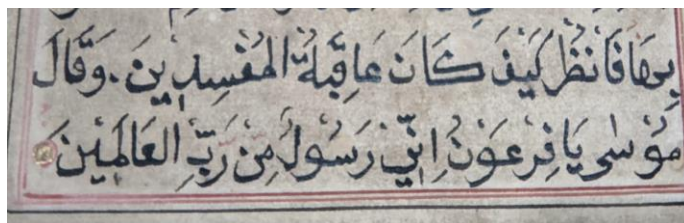 بِهَا فَانْظُرْ كَيْفَ كَانَ عَاقِبَةُ الْمُفْسِدِينَ وَقَالَ
مُوسٰى يَا فِرْعَوْنُ اِنِّي رَسُولٌ مِنْ رَبِّ الْعَالَمِينَ